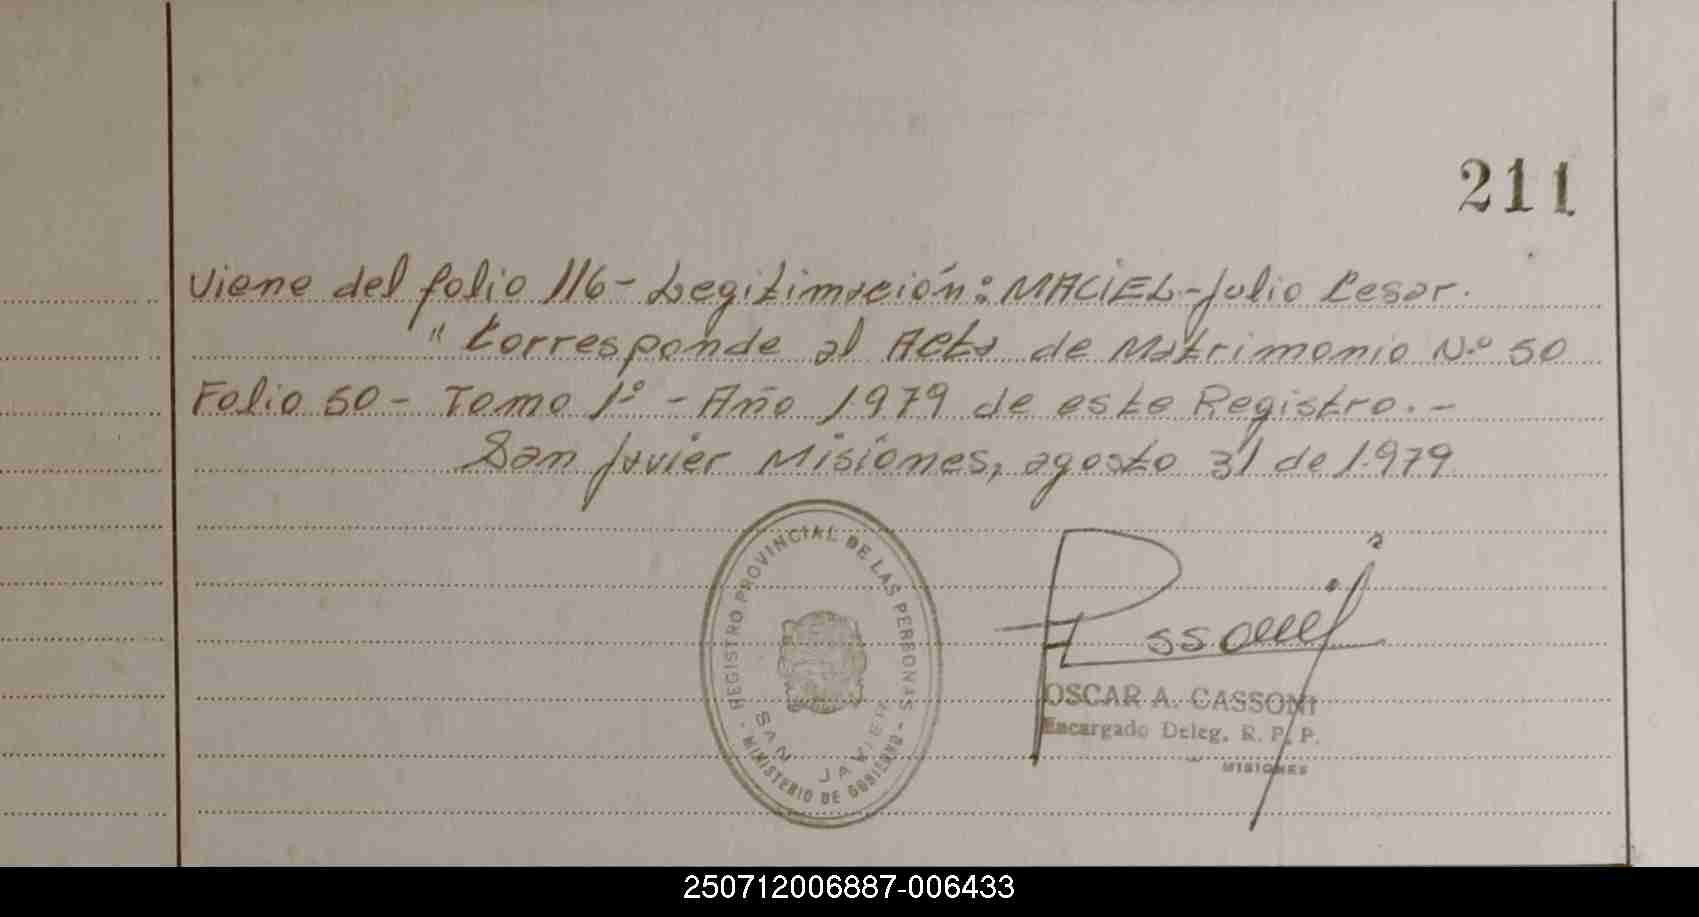 211
Viene del folio 116 - Legitimación: MACIEL - Julio Cesar.
" Corresponde al Acta de Matrimonio N.º 50
Folio 50 - Tomo 1º - Año 1979 de este Registro. -
San Javier Misiones, agosto 31 de 1979
REGISTRO PROVINCIAL DE LAS PERSONAS
SAN JAVIER
- MINISTERIO DE GOBIERNO -
OSCAR A. CASSONI
Encargado Deleg. R. P. P.
MISIONES
250712006887-006433